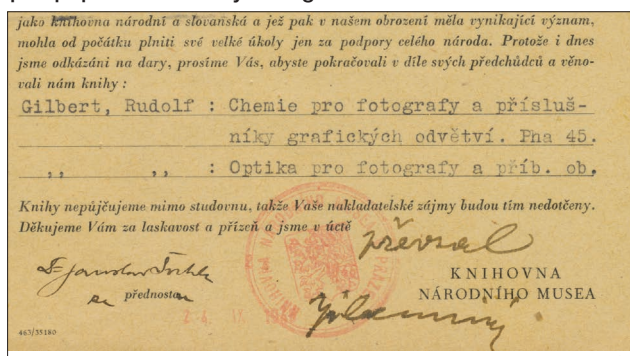 jako knihovna národní a slovanská a jež pak v našem obrození měla vynikající význam,
mohla od počátku plniti své velké úkoly jen za podpory celého národa. Protože i dnes
jsme odkázáni na dary, prosíme Vás, abyste pokračovali v díle svých předchůdců a věno-
vali nám knihy :
Gilbert, Rudolf : Chemie pro fotografy a přísluš-
níky grafických odvětví. Pha 45.
,, ,, : Optika pro fotografy a příb. ob.
Knihy nepůjčujeme mimo studovnu, takže Vaše nakladatelské zájmy budou tím nedotčeny.
Děkujeme Vám za laskavost a přízeň a jsme v úctě
převzal
KNIHOVNA
NÁRODNÍHO MUSEA
přednosta
463/35180